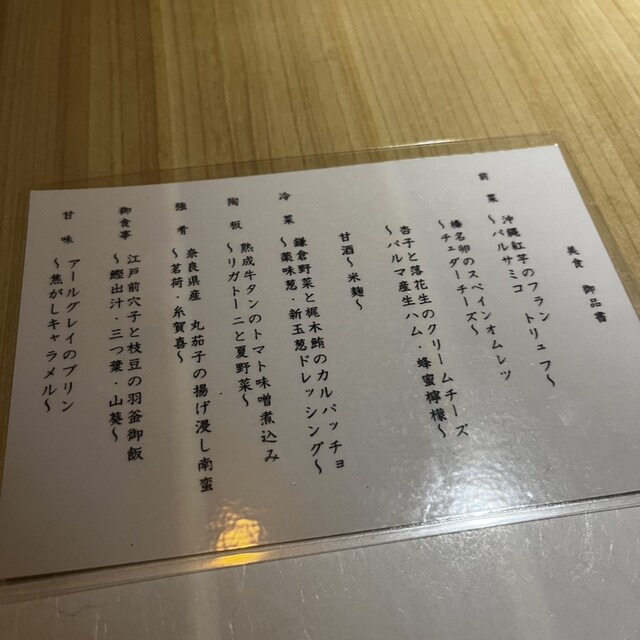 美食 御品書
前菜 沖縄紅芋のフラン トリュフ～
～バルサミコ
榛名卵のスペインオムレツ
～チェダーチーズ～
杏子と落花生のクリームチーズ
～パルマ産生ハム・蜂蜜檸檬～
甘酒～米麹～
冷菜 鎌倉野菜と梶木鮪のカルパッチョ
～薬味葱・新玉葱ドレッシング～
陶板 熟成牛タンのトマト味噌煮込み
～リガトーニと夏野菜～
強肴 奈良県産 丸茄子の揚げ浸し南蛮
～茗荷・糸賀喜～
御食事 江戸前穴子と枝豆の羽釜御飯
～鰹出汁・三つ葉・山葵～
甘味 アールグレイのプリン
～焦がしキャラメル～